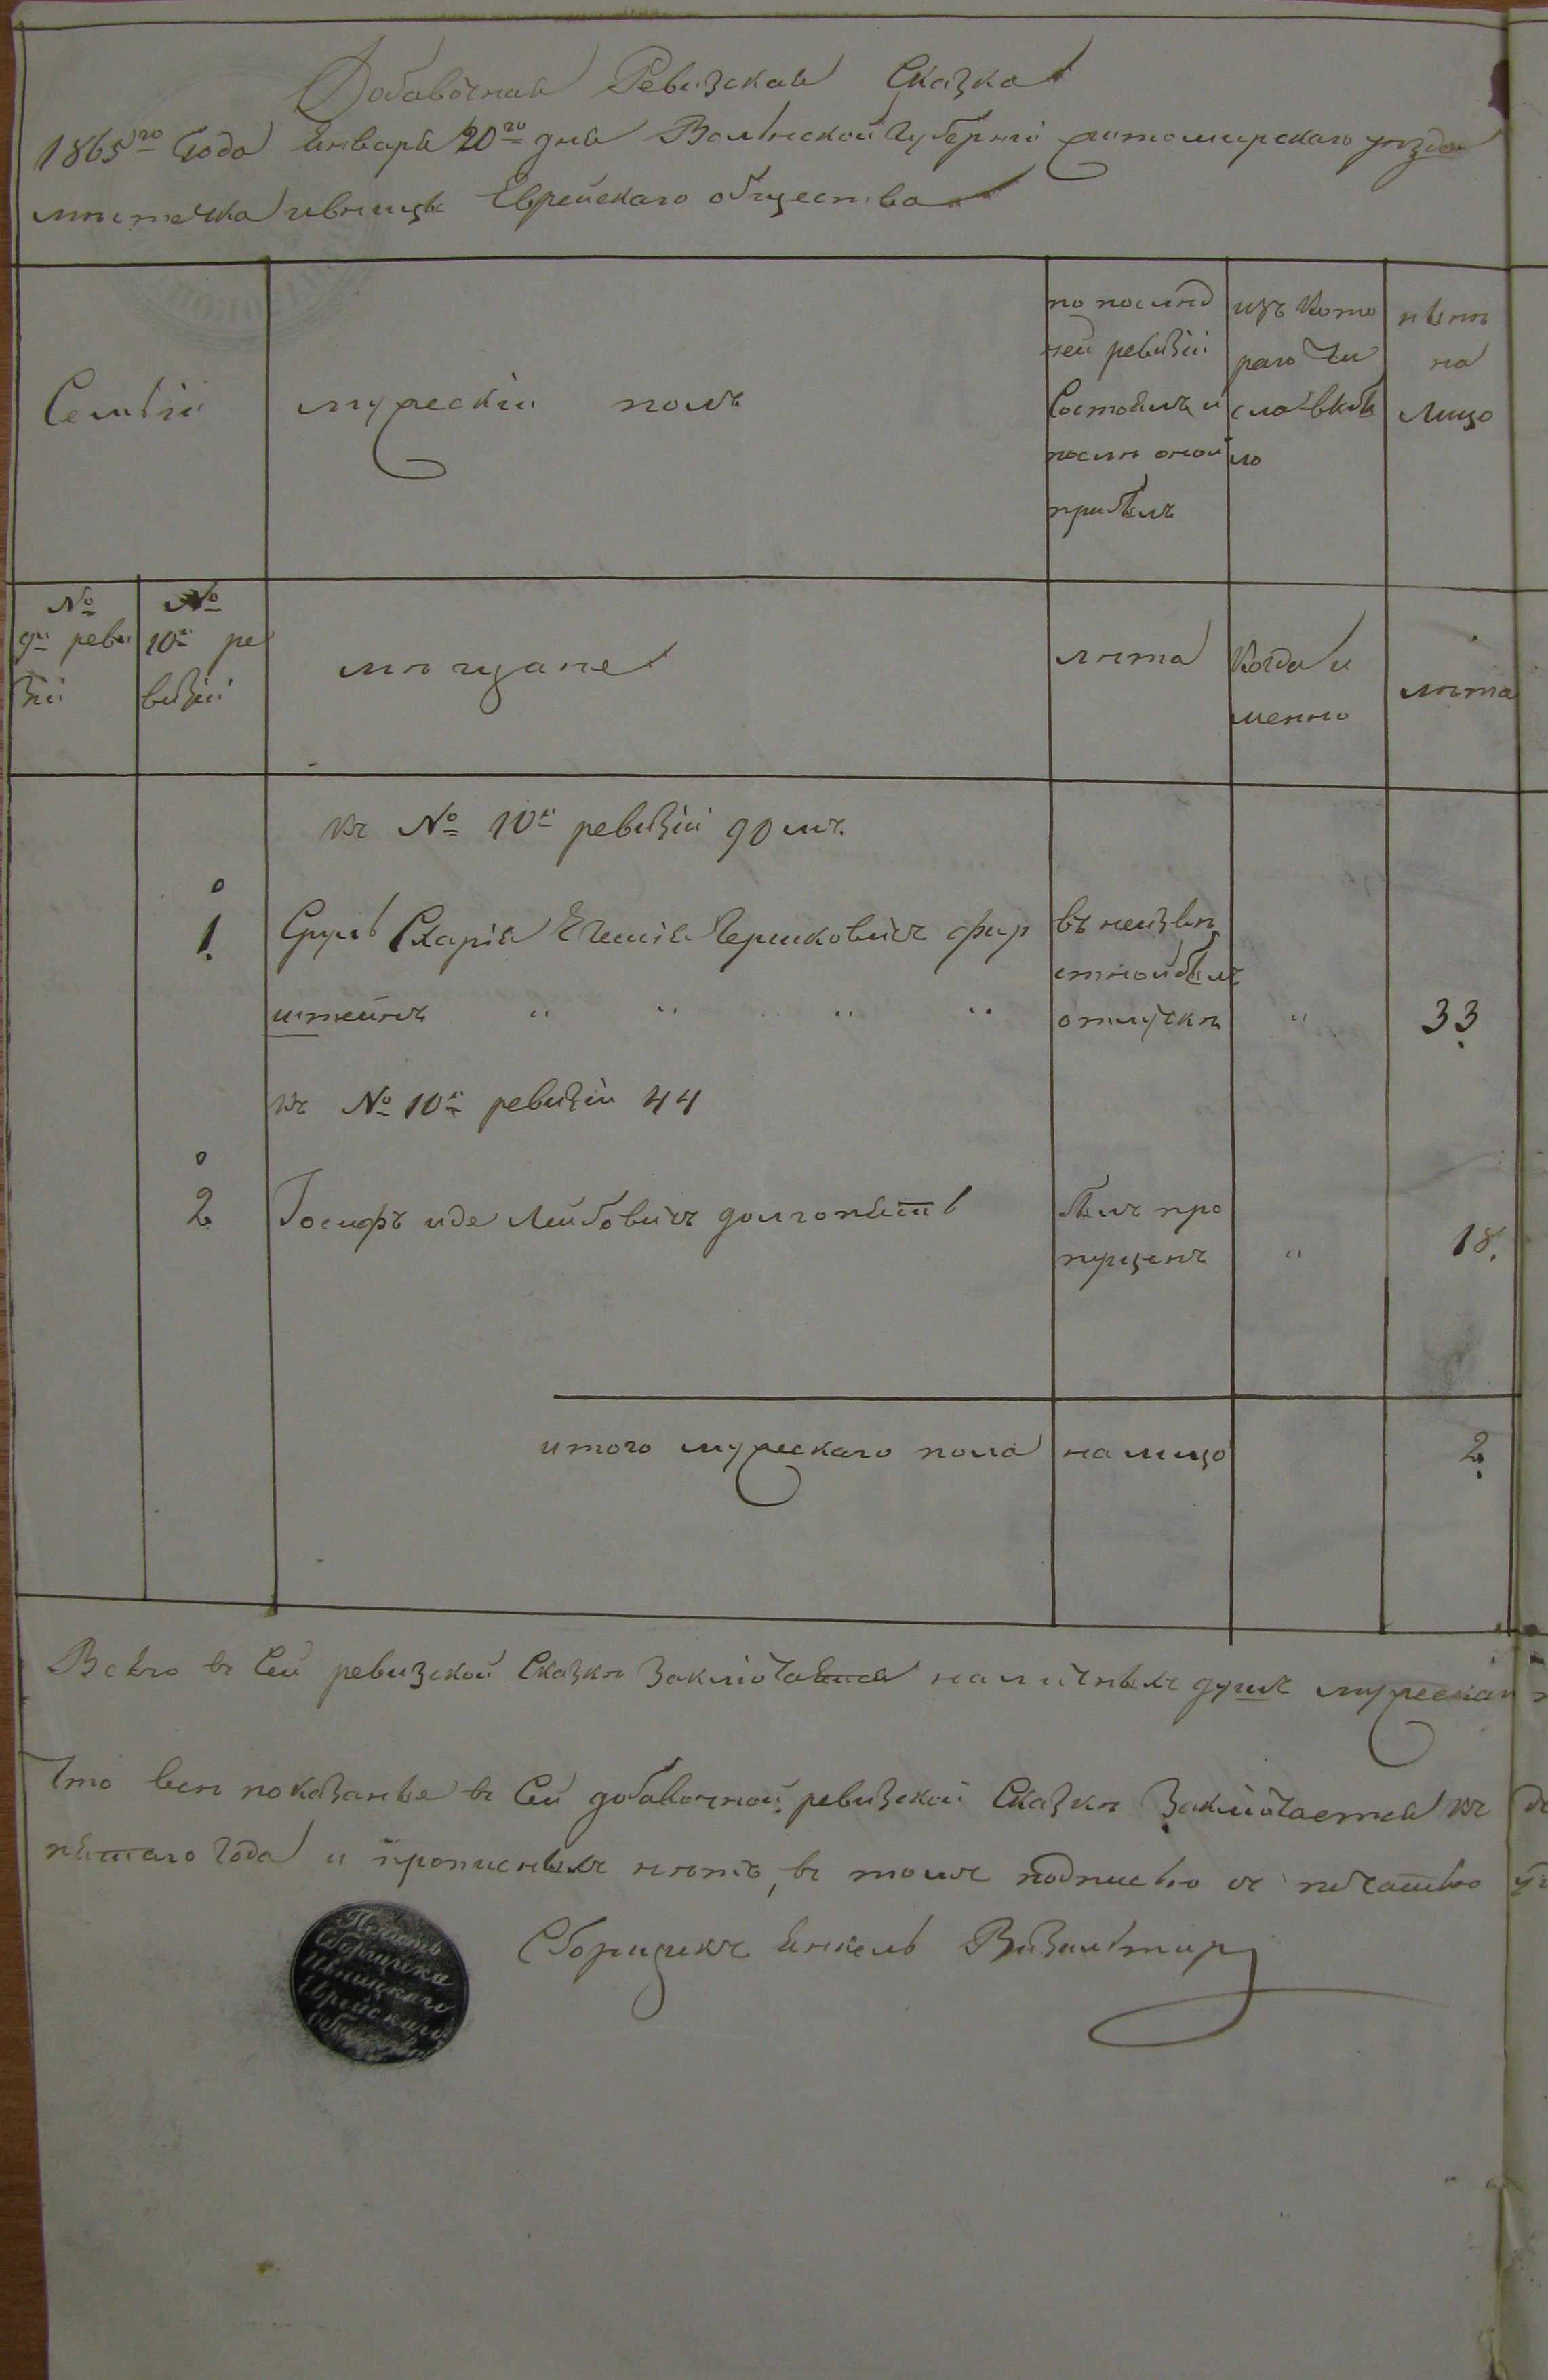 Добавочная Ревизская Сказка
1865го Года Января 20го дня Волынской Губерніи Житомирскаго уѣзда
мѣстечка Ивницы Еврейскаго общества
Семьи
мужескій полъ
по послѣд
ней ревизіи
состоялъ и
послѣ оной
прибылъ
изъ кото
раго чи
сла выбы
ло
нынѣ
на
лицо
№
9й реви
зіи
№
10й ре
визіи
мѣщане
лѣта
когда и
менно
лѣта
къ № 10й ревизіи 90мъ
1.
Сруль Схарія Гершковичъ Фир
штейнъ " " " "
въ неизвѣ
стной былъ
отлучкѣ
"
33.
къ № 10й ревизіи 44
2.
Іосифъ Иде Лейбовичъ Долгопятъ
былъ про
пущенъ
"
18.
итого мужескаго пола на лицо 2.
Всего въ сей ревизской сказкѣ заключается наличныхъ душъ мужескаго
Что всѣ показанные въ сей добавочной ревизской сказкѣ заключается къ
нѣшняго года и прописныхъ нѣтъ, въ томъ подписью съ печатью
Сборщикъ Янкель Визальтир
Печать
Сборщика
Ивницкаго
Еврейскаго
общества